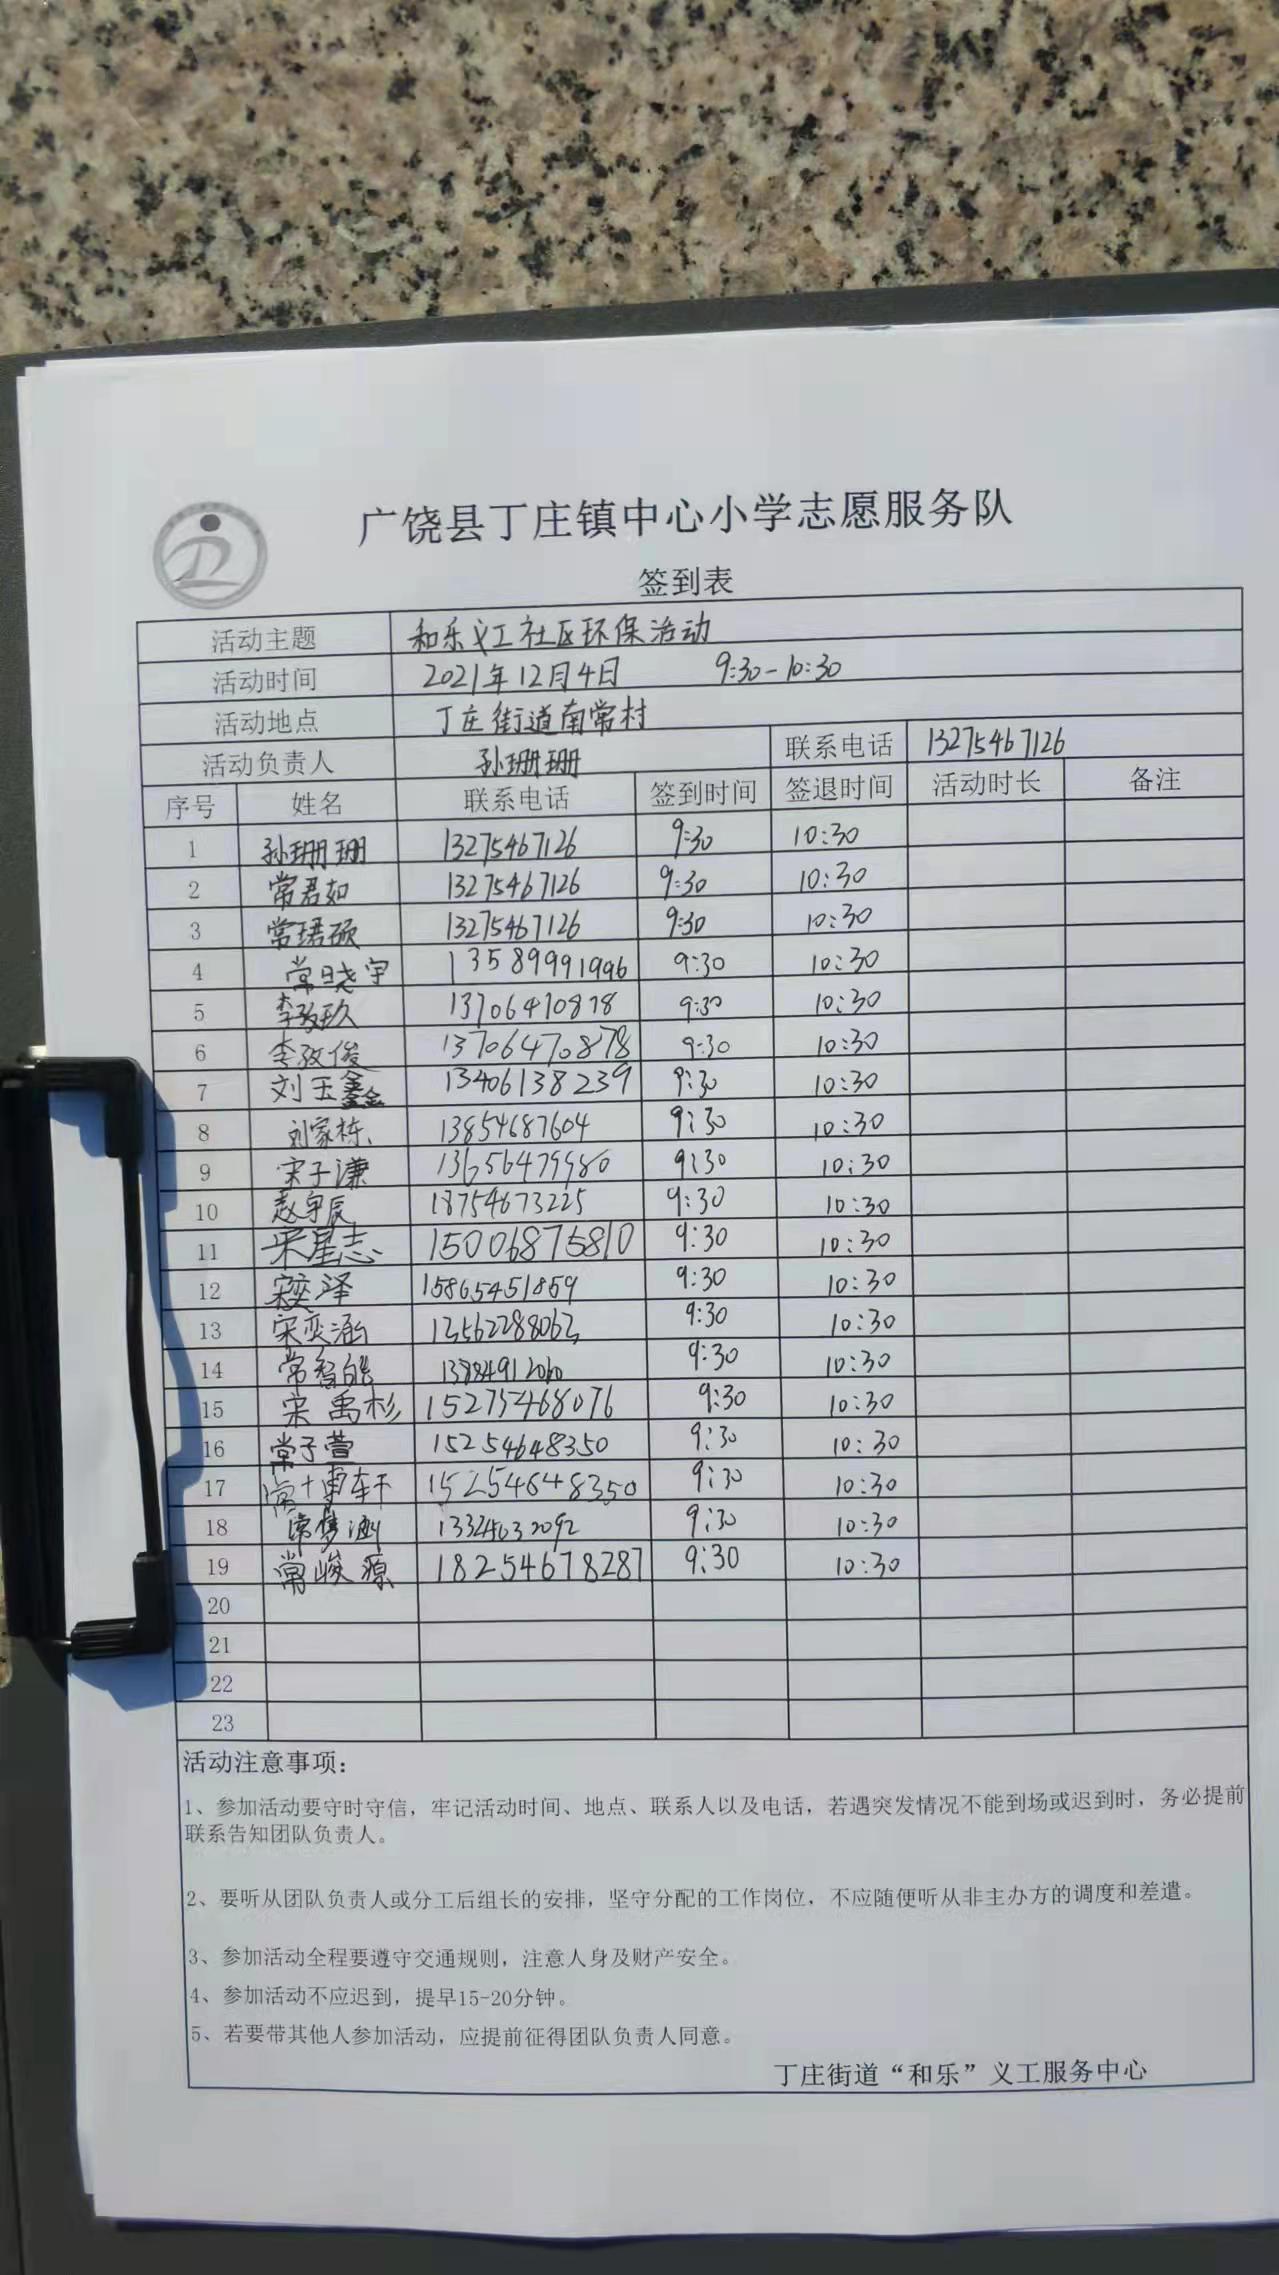 广饶县丁庄镇中心小学志愿服务队
签到表
活动主题 和乐义工社区环保活动
活动时间 2021年12月4日 9:30-10:30
活动地点 丁庄街道南常村
活动负责人 孙珊珊 联系电话 13275467126
序号 姓名 联系电话 签到时间 签退时间 活动时长 备注
1 孙珊珊 13275467126 9:30 10:30
2 常君如 13275467126 9:30 10:30
3 常珺硕 13275467126 9:30 10:30
4 常晓宇 13589991996 9:30 10:30
5 李孜玖 13706470878 9:30 10:30
6 李孜俊 13706470878 9:30 10:30
7 刘玉鑫 13406138239 9:30 10:30
8 刘家栋 13854687604 9:30 10:30
9 宋子谦 13656479980 9:30 10:30
10 赵宇辰 18754673225 9:30 10:30
11 宋星志 15006875810 9:30 10:30
12 宋奕泽 15865451859 9:30 10:30
13 宋奕涵 13562288063 9:30 10:30
14 常智皓 9:30 10:30
15 宋禹杉 15275468076 9:30 10:30
16 常子萱 15254648350 9:30 10:30
17 常博轩 15254648350 9:30 10:30
18 常梦涵 9:30 10:30
19 常峻源 18254678287 9:30 10:30
20
21
22
23
活动注意事项：
1、参加活动要守时守信，牢记活动时间、地点、联系人以及电话，若遇突发情况不能到场或迟到时，务必提前
联系告知团队负责人。
2、要听从团队负责人或分工后组长的安排，坚守分配的工作岗位，不应随便听从非主办方的调度和差遣。
3、参加活动全程要遵守交通规则，注意人身及财产安全。
4、参加活动不应迟到，提早15-20分钟。
5、若要带其他人参加活动，应提前征得团队负责人同意。
丁庄街道“和乐”义工服务中心